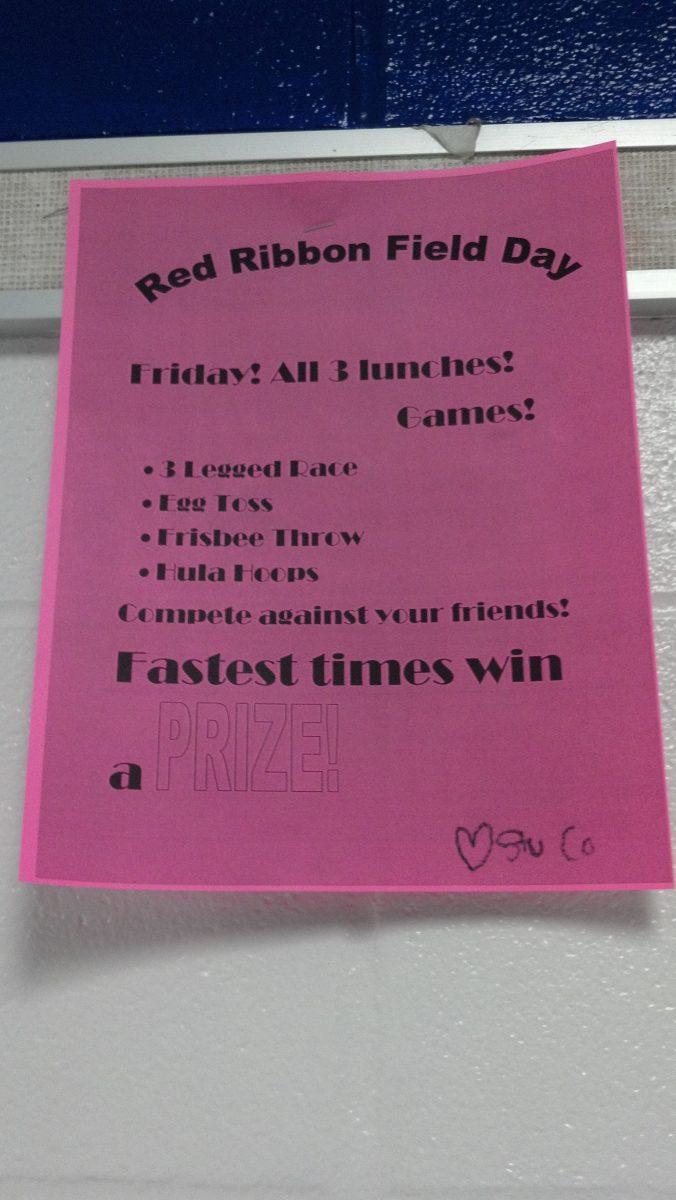 Red Ribbon Field Day
Friday! All 3 lunches!
Games!
• 3 Legged Race
• Egg Toss
• Frisbee Throw
• Hula Hoops
Compete against your friends!
Fastest times win
a PRIZE!
♡ Stu Co